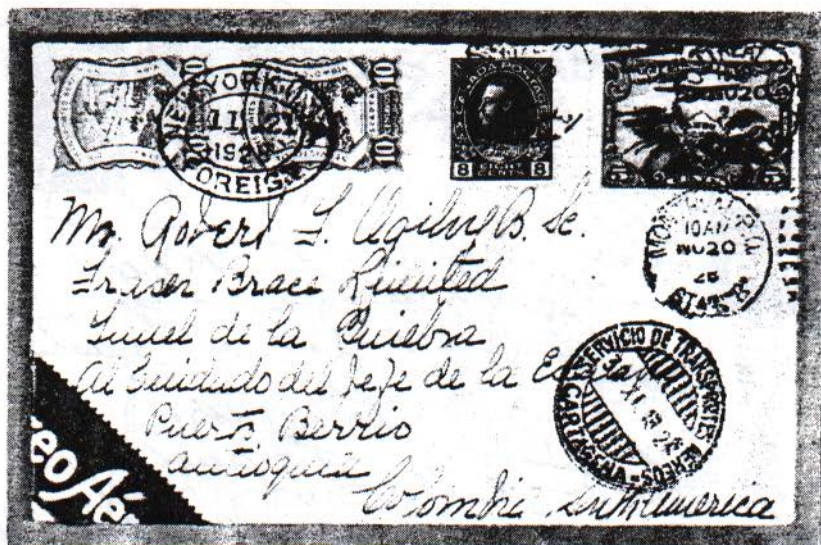 10 10
10 10
NEW YORK, N.Y.
11-21
192
FOREIGN
CANADA POSTAGE
8 8
EIGHT CENTS
5 5
MONTREAL
NO 20
MONTREAL P.Q.
10 AM
NO 20
28
Mr. Robert S. Ogilvy B. Sc.
Fraser Brace Limited
Tunel de la Quiebra
al Cuidado del Jefe de la
Puerto Berrio
Antioquia
Colombia South America
SERVICIO DE TRANSPORTES AEREOS
CARTAGENA
reo Aér